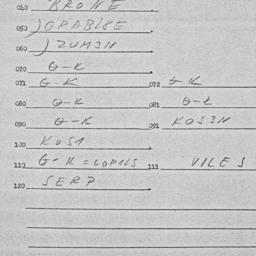 040 KRONE
050 ) GRABLJE
060 ) ZUMIN
070 G-K
071 G-K 072 G-K
080 G-K 081 G-K
090 G-K 091 KOSIN
100 KOSI
110 G-K = LOPALS 111 VILE S
120 SERP